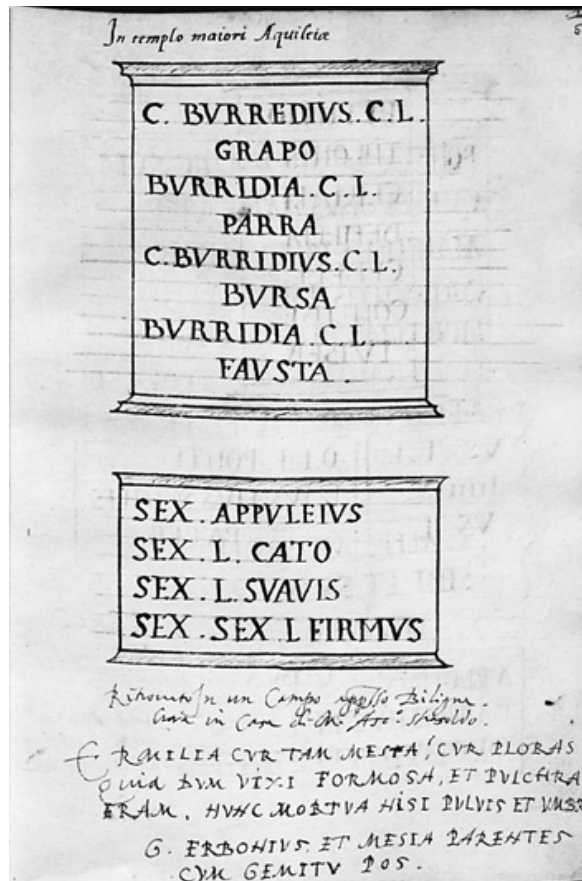 In templo maiori Aquileiæ
C. BVRREDIVS. C. L.
GRAPO
BVRRIDIA. C. L.
PARRA
C. BVRRIDIVS. C. L.
BVRSA
BVRRIDIA C. L.
FAVSTA.
SEX. APPVLEIVS
SEX. L. CATO
SEX. L. SVAVIS
SEX. SEX. L FIRMVS
Ritrovato In un Campo Biligna.
in Casa
ERMILIA CVR TAM MESTA, CVR PLORAS
Quia DVM VIXI FORMOSA, ET PVLCHRA
ERAM, NVNC MORTVA NISI PVLVIS ET VMBR
G. ERBONIVS, ET MESIA PARENTES
CVM GEMITV POS.